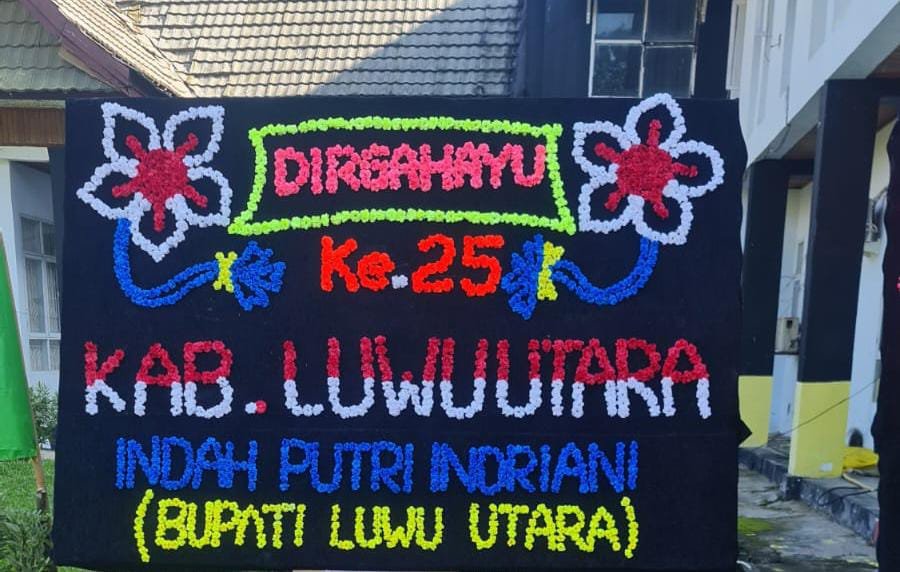 DIRGAHAYU
Ke.25
KAB. LUWU UTARA
INDAH PUTRI INDRIANI
(BUPATI LUWU UTARA)